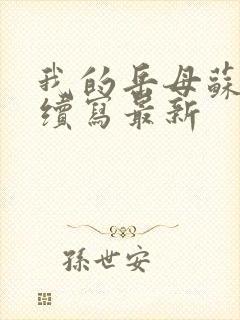 我的岳母蘇
續寫最新
孫世安